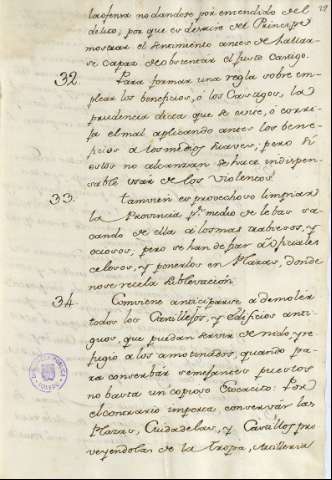 la ofensa no dandose por entendido de el
delito; por que es desaire del Principe
mostrar el sentimiento antes de hallar-
se capaz de obstentar el justo castigo.
32. Para formar una regla sobre em-
plear los beneficios, ó los Castigos, la
prudencia dicta que se evite, ó corri-
ja el mal aplicando antes los bene-
ficios a los medios suaves; pero si
estos no alcanzan se hace indispen-
sable usar de los violentos.
33. Tamvien es provechoso limpiar
la Provincia pr. medio de lebas sa-
cando de ella a los mas traviesos, y
ociosos; pero se han de fiar a oficiales
celosos, y ponerlos en Plazas, donde
no se recela sublevación.
34. Comviene anticiparse a demoler
todos los Castillejos, y Edificios anti-
guos que puedan servir de nido, y re-
fugio a los amotinados, quando pa-
ra conserbar semejantes puestos
no basta un copioso Exercito: Por
el contrario importa, conservar las
Plazas, Ciudadelas, y Castillos pro-
veyendolas de la tropa, Artilleria